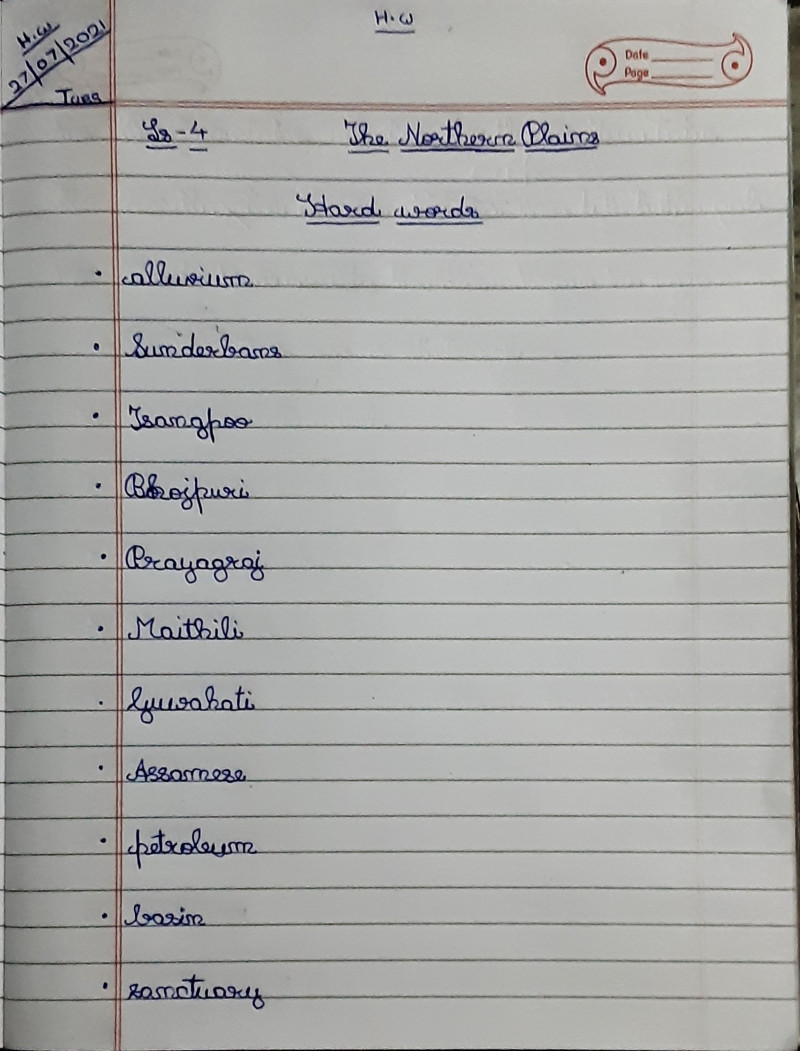 H.W
H.W
27/07/2021
Tues
Date
Page
Ls-4 The Northern Plains
Hard words
• alluvium
• Sunderbans
• Tsangpoo
• Bhojpuri
• Prayagraj
• Maithili
• Guwahati
• Assamese
• petroleum
• basin
• sanctuary